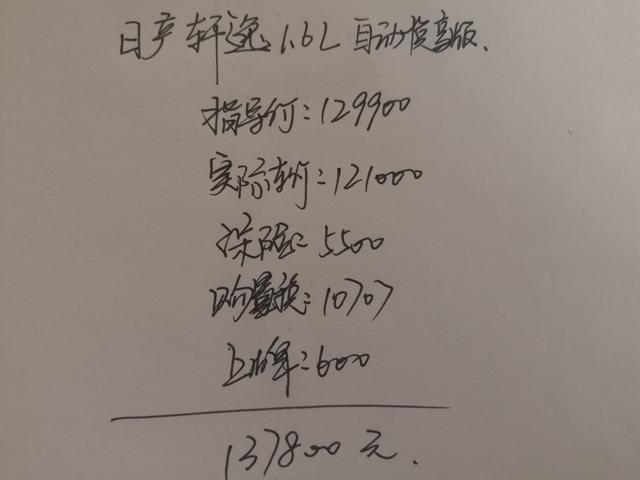 日产轩逸1.6L自动悦享版.
指导价:129900
实际车价:121000
保险:5500
购置税:10707
上牌:600
137800元.